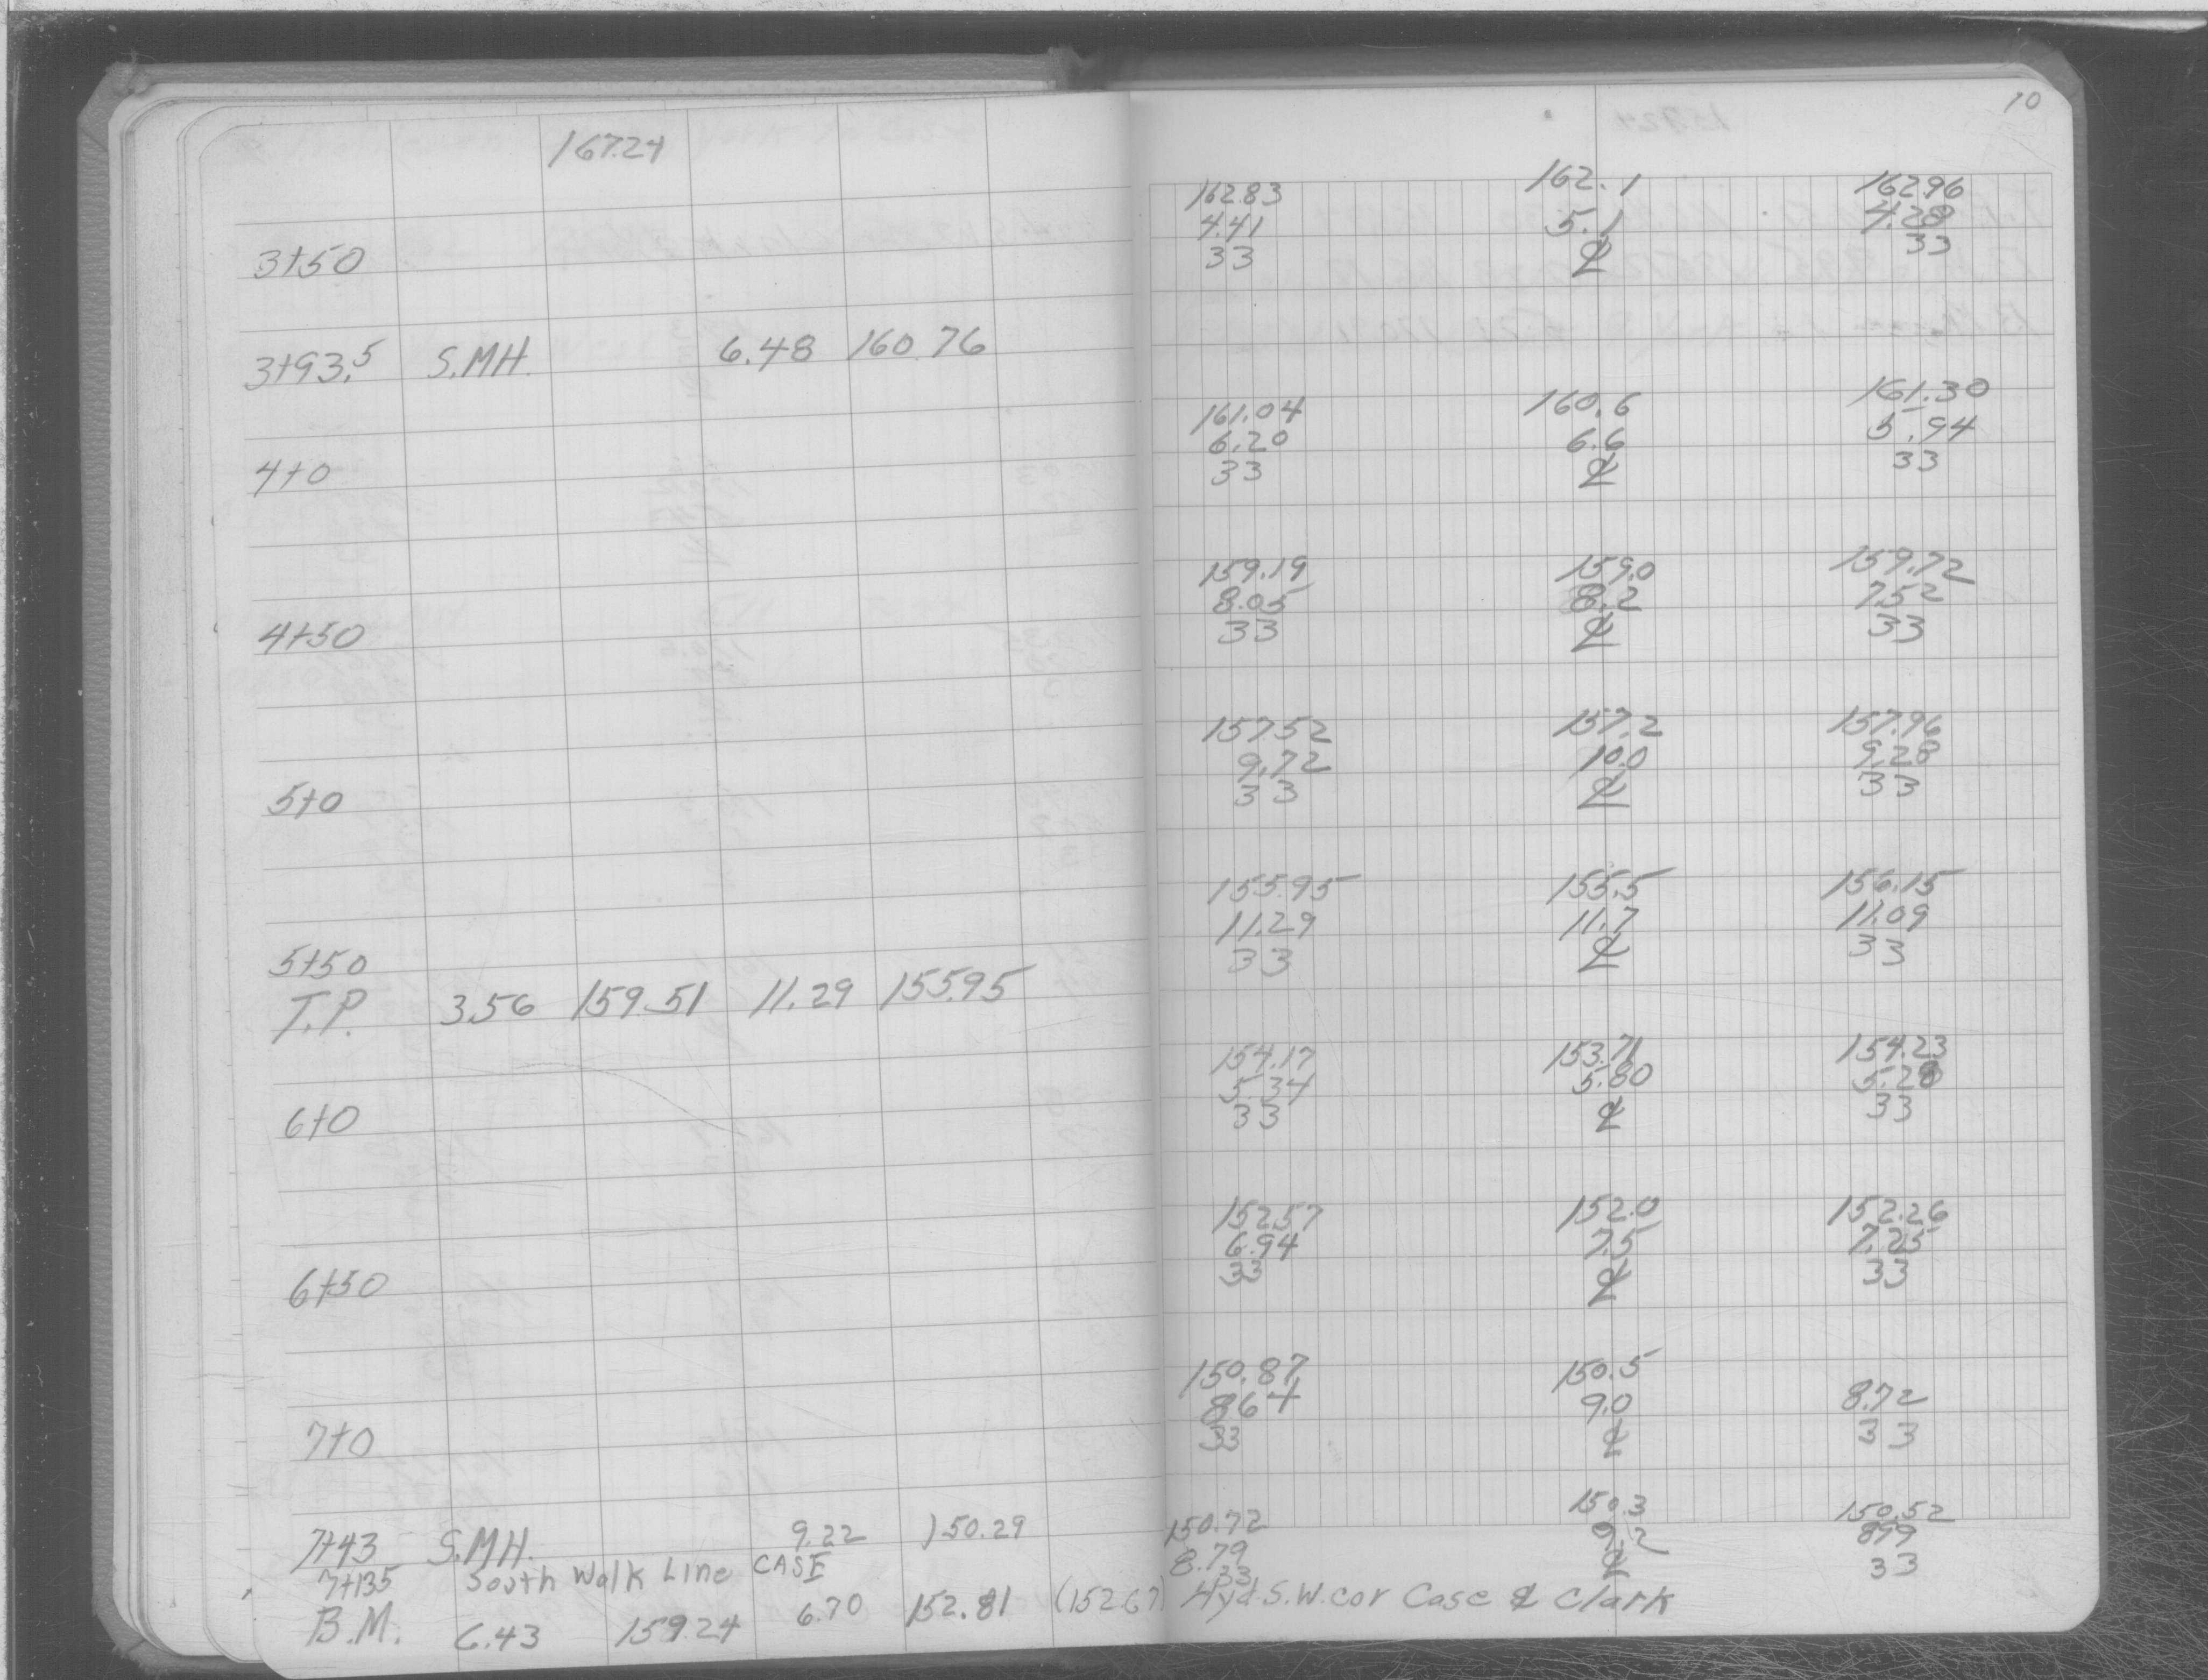 167.24
3+50
3+93.5 S.MH. 6.48 160.76
4+0
4+50
5+0
5+50
T.P. 3.56 159.51 11.29 155.95
6+0
6+50
7+0
7+43 S.MH. 9.22 150.29
7+135 South Walk Line CASE
B.M. 6.43 159.24 6.70 152.81 (152.67) Hyd S.W. cor Case & Clark
10
162.83 162.1 162.96
4.41 5.1 4.28
33 ℄ 33
161.04 160.6 161.30
6.20 6.6 5.94
33 ℄ 33
159.19 159.0 159.72
8.05 8.2 7.52
33 ℄ 33
157.52 157.2 157.96
9.72 10.0 9.28
33 ℄ 33
155.95 155.5 156.15
11.29 11.7 11.09
33 ℄ 33
154.17 153.71 154.23
5.34 5.80 5.28
33 ℄ 33
152.57 152.0 152.26
6.94 7.5 7.25
33 ℄ 33
150.87 150.5
8.64 9.0 8.72
33 ℄ 33
150.72 150.3 150.52
8.79 9.2 8.99
33 ℄ 33